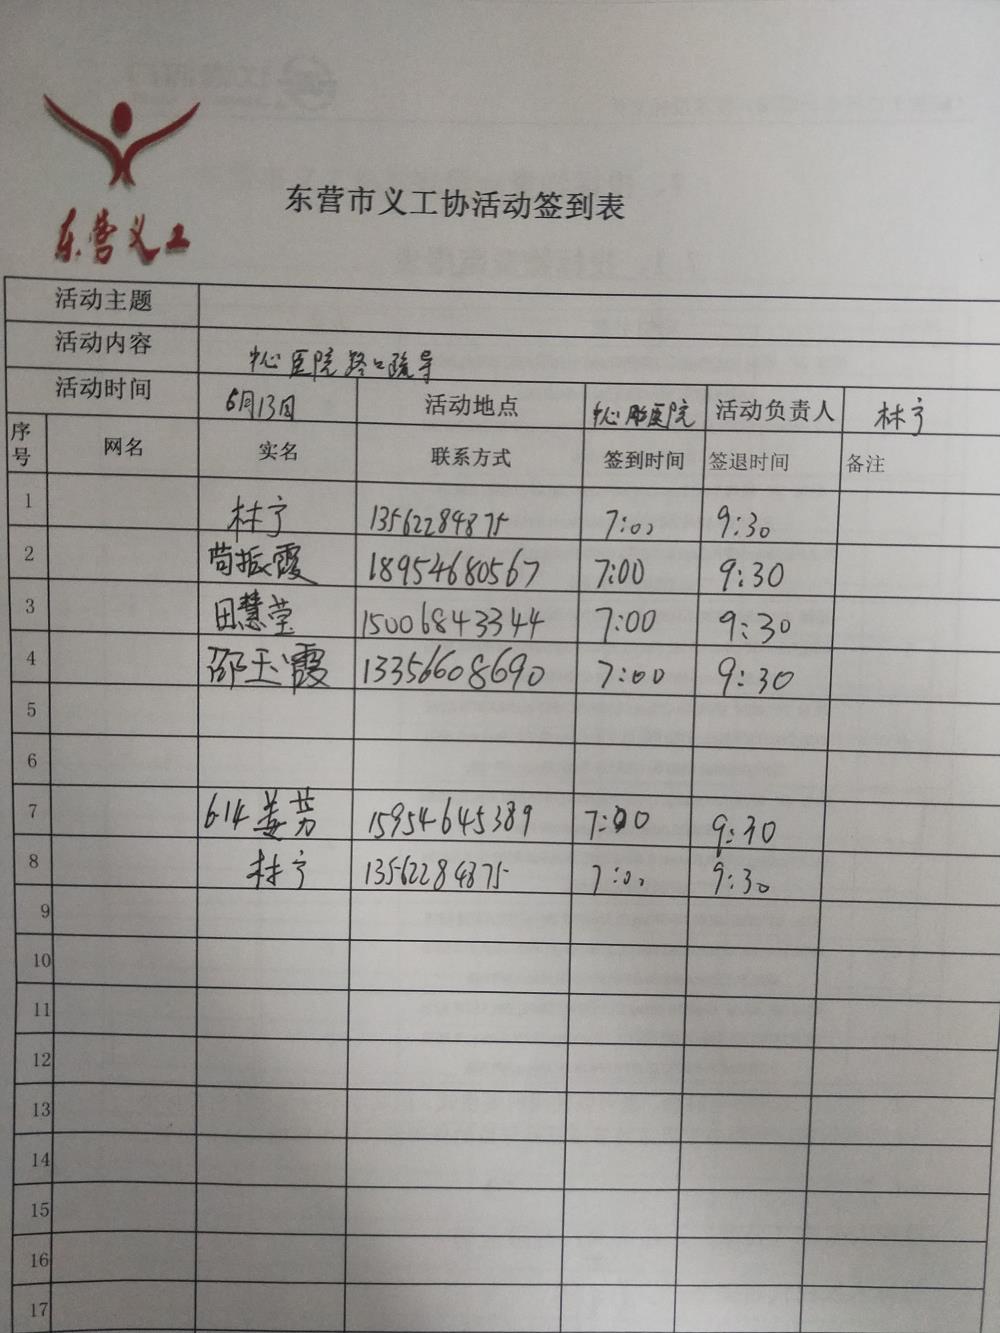 东营义工
东营市义工协活动签到表
活动主题
活动内容 中心医院路口疏导
活动时间 6月13日 活动地点 中心医院 活动负责人 林宁
序号 网名 实名 联系方式 签到时间 签退时间 备注
1 林宁 13562284875 7:00 9:30
2 苟振霞 18954680567 7:00 9:30
3 田慧莹 15006843344 7:00 9:30
4 邵玉霞 13356608690 7:00 9:30
5
6
7 6.14 姜芳 15954645389 7:00 9:30
8 林宁 13562284875 7:00 9:30
9
10
11
12
13
14
15
16
17